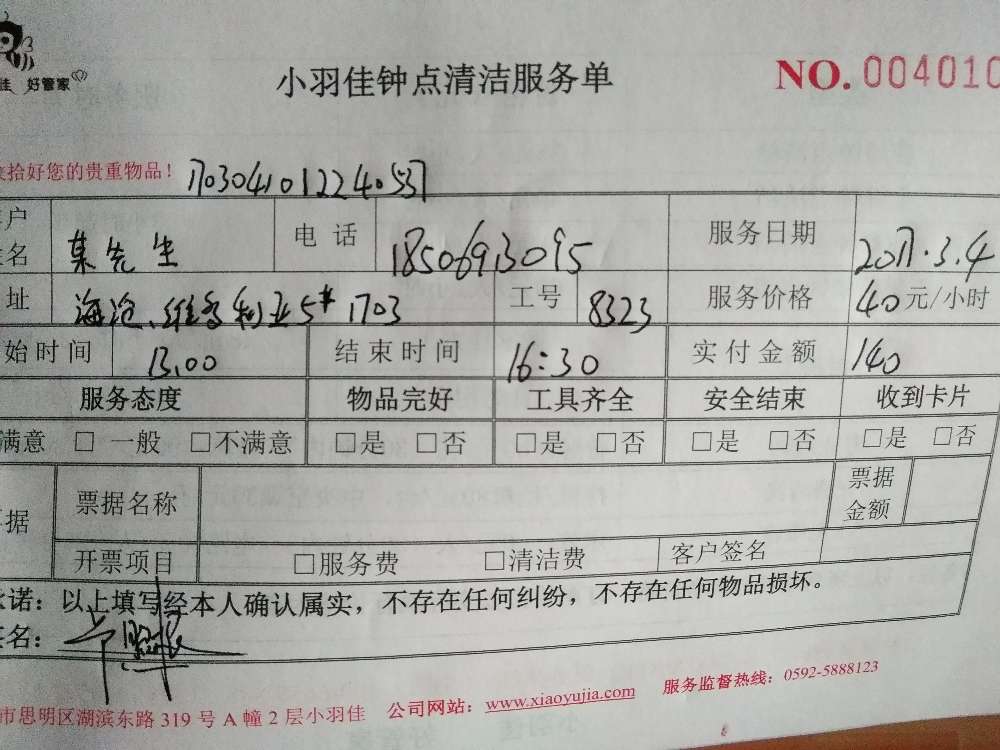 佳 好管家
小羽佳钟点清洁服务单
NO. 004010
拾好您的贵重物品！ 17030410122405
户
名
电 话 18506913095 服务日期 2017.3.4
址 海沧、维多利亚5# 1703 工号 8323 服务价格 40元/小时
始时间 13:00 结束时间 16:30 实付金额 140
服务态度 物品完好 工具齐全 安全结束 收到卡片
满意 □ 一般 □不满意 □是 □否 □是 □否 □是 □否 □是 □否
据 票据名称 票据金额
开票项目 □服务费 □清洁费 客户签名
诺：以上填写经本人确认属实，不存在任何纠纷，不存在任何物品损坏。
名：
市思明区湖滨东路 319 号 A 幢 2 层小羽佳 公司网站：www.xiaoyujia.com 服务监督热线：0592-5888123